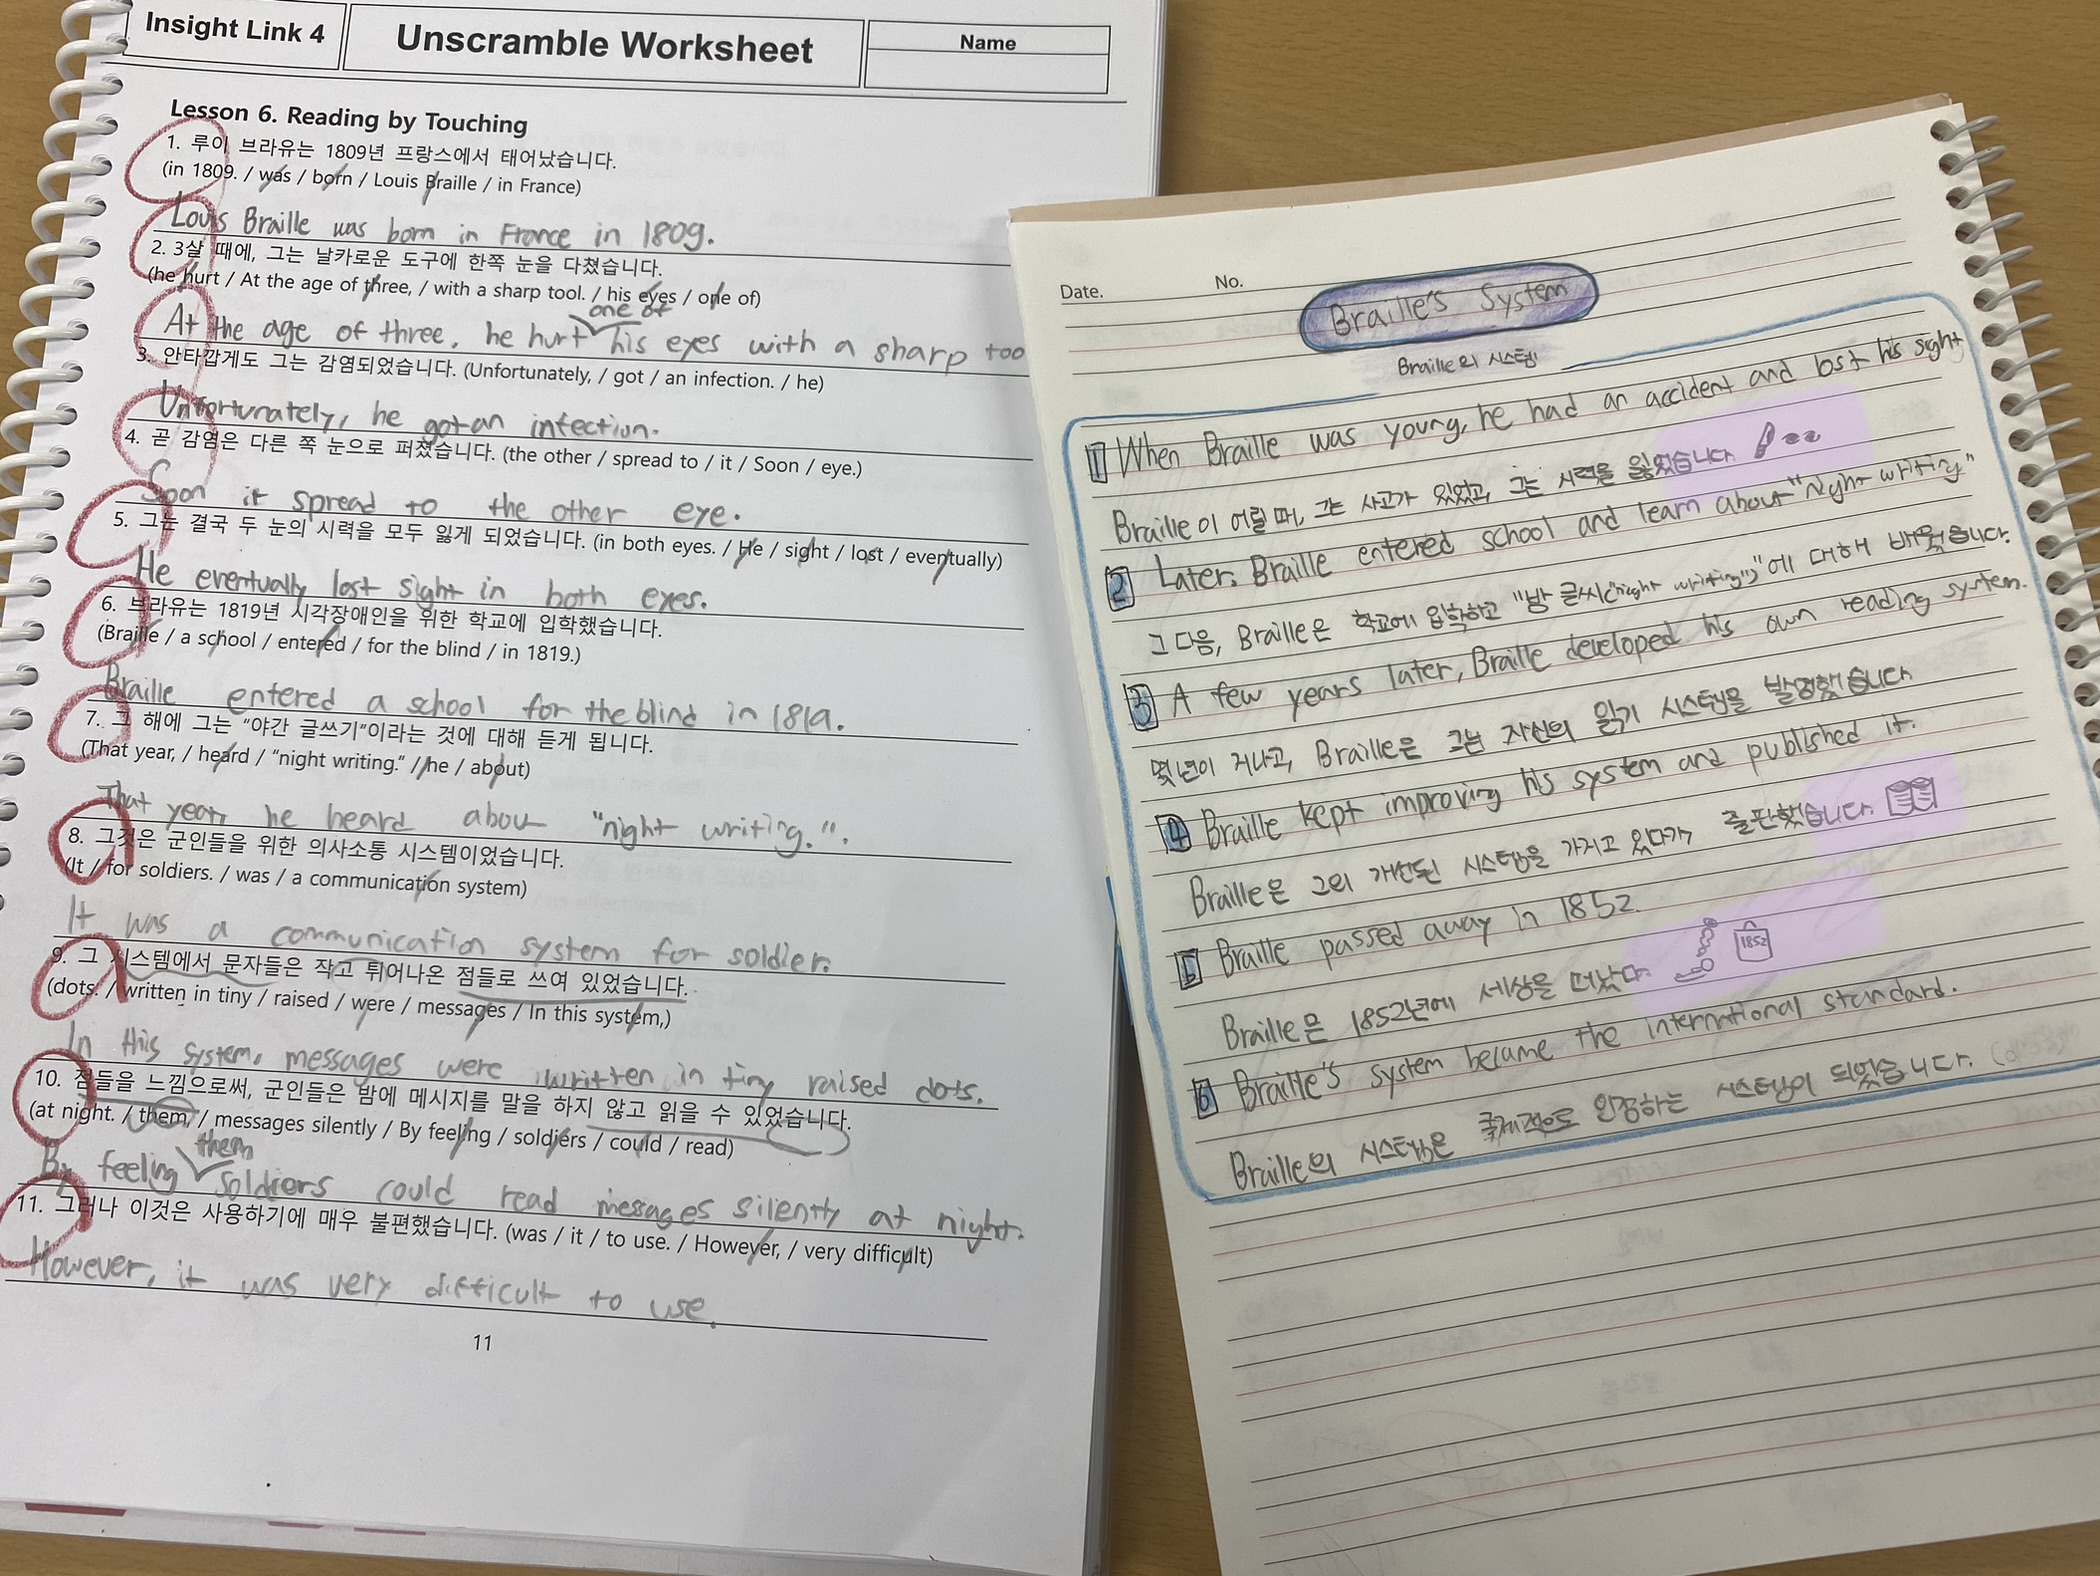 Insight Link 4
Unscramble Worksheet
Name
Lesson 6. Reading by Touching
1. 루이 브라유는 1809년 프랑스에서 태어났습니다.
(in 1809. / was / born / Louis Braille / in France)
Louis Braille was born in France in 1809.
2. 3살 때에, 그는 날카로운 도구에 한쪽 눈을 다쳤습니다.
(he hurt / At the age of three, / with a sharp tool. / his eyes / one of)
one of
At the age of three, he hurt his eyes with a sharp too
3. 안타깝게도 그는 감염되었습니다. (Unfortunately, / got / an infection. / he)
Unfortunately, he got an infection.
4. 곧 감염은 다른 쪽 눈으로 퍼졌습니다. (the other / spread to / it / Soon / eye.)
Soon it spread to the other eye.
5. 그는 결국 두 눈의 시력을 모두 잃게 되었습니다. (in both eyes. / He / sight / lost / eventually)
He eventually lost sight in both eyes.
6. 브라유는 1819년 시각장애인을 위한 학교에 입학했습니다.
(Braille / a school / entered / for the blind / in 1819.)
Braille entered a school for the blind in 1819.
7. 그 해에 그는 "야간 글쓰기"이라는 것에 대해 듣게 됩니다.
(That year, / heard / "night writing." / he / about)
That year, he heard about "night writing.".
8. 그것은 군인들을 위한 의사소통 시스템이었습니다.
(It / for soldiers. / was / a communication system)
It was a communication system for soldier.
9. 그 시스템에서 문자들은 작고 튀어나온 점들로 쓰여 있었습니다.
(dots. / written in tiny / raised / were / messages / In this system,)
In this system, messages were written in tiny raised dots.
10. 점들을 느낌으로써, 군인들은 밤에 메시지를 말을 하지 않고 읽을 수 있었습니다.
(at night. / them, / messages silently / By feeling / soldiers / could / read)
them
By feeling soldiers could read messages silently at night.
11. 그러나 이것은 사용하기에 매우 불편했습니다. (was / it / to use. / However, / very difficult)
However, it was very difficult to use.
11
Date.
No.
Braille's System
Braille의 시스템
1 When Braille was young, he had an accident and lost his sight
Braille이 어릴 때, 그는 사고가 있었고, 그는 시력을 잃었습니다.
2 Later, Braille entered school and learn about "night writing"
그 다음, Braille은 학교에 입학하고 "밤 글씨("night writing")"에 대해 배웠습니다.
3 A few years later, Braille developed his own reading system.
몇 년이 지나고, Braille은 그는 자신의 읽기 시스템을 발명했습니다
4 Braille kept improving his system and published it.
Braille은 그의 개선된 시스템을 가지고 있다가 출판했습니다.
5 Braille passed away in 1852.
Braille은 1852년에 세상을 떠났다.
1852
6 Braille's system became the international standard.
Braille의 시스템은 국제적으로 인정하는 시스템이 되었습니다.